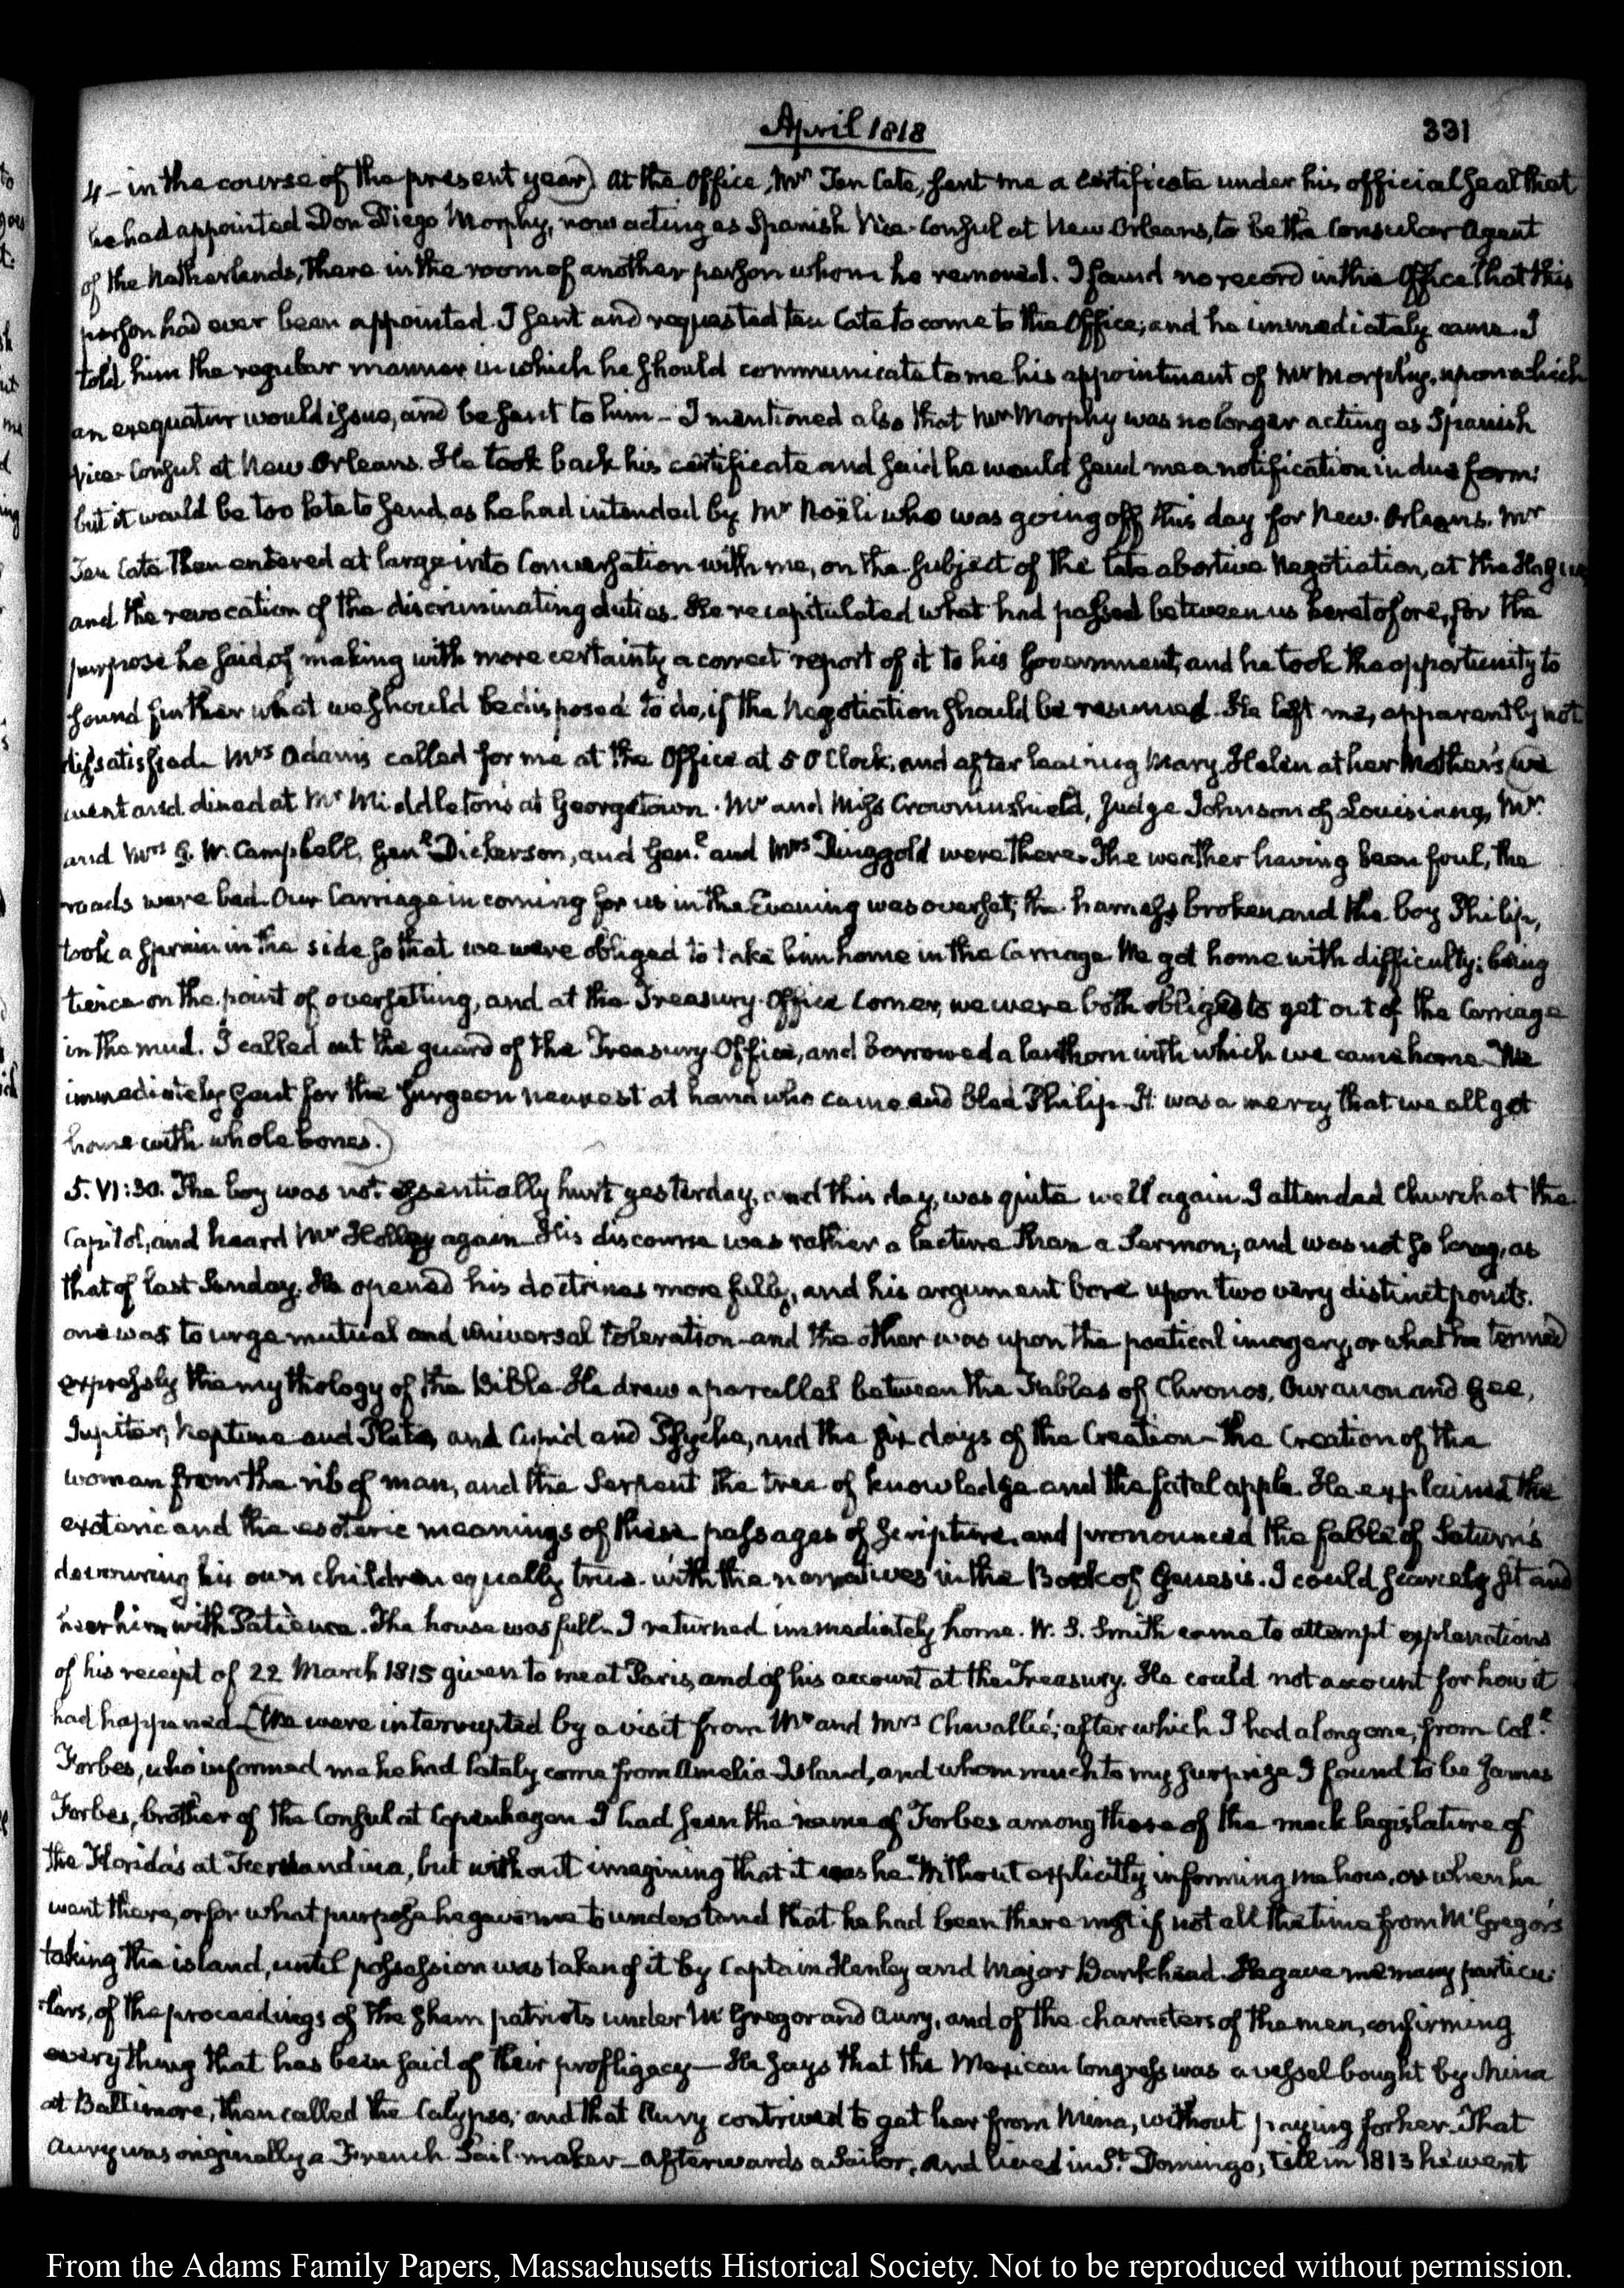 April 1818
331
4 – in the course of the present year) At the Office, Mr Ten Cate, sent me a certificate under his official seal that
he had appointed Don Diego Morphy, now acting as Spanish Vice-Consul at New Orleans, to be the Consular Agent
of the Netherlands, there in the room of another person whom he removed. I found no record in the Office that this
person had ever been appointed. I sent and requested ten Cate to come to the Office; and he immediately came. I
told him the regular manner in which he should communicate to me his appointment of Mr Morphy, upon which
an exequatur would issue, and be sent to him – I mentioned also that Mr Morphy was no longer acting as Spanish
Vice-Consul at New Orleans. He took back his certificate and said he would send me a notification in due form:
but it would be too late to send, as he had intended by Mr Noëli who was going off this day for New-Orleans. Mr
Ten Cate then entered at large into Conversation with me, on the subject of the late abortive Negotiation, at the Hague
and the revocation of the discriminating duties. He recapitulated what had passed between us heretofore, for the
purpose he said, of making with more certainty a correct report of it to his Government, and he took the opportunity to
sound further what we should be disposed to do, if the Negotiation should be resumed. He left me, apparently not
dissatisfied. Mrs Adams called for me at the Office at 5 O'Clock, and after leaving Mary Helen at her Mother's (we
went and dined at Mr Middleton's at Georgetown. Mr and Miss Crowninshield, Judge Johnson of Louisiana, Mr
and Mrs G. W. Campbell, Genl Dickerson, and Genl and Mrs Ringgold were there. The weather having been foul, the
roads were bad. Our Carriage in coming for us in the Evening was overset; the harness broken and the boy Philip,
took a sprain in the side so that we were obliged to take him home in the Carriage. We got home with difficulty; being
twice on the point of oversetting, and at the Treasury Office Corner, we were both obliged to get out of the Carriage
in the mud. I called out the guard of the Treasury Office, and borrowed a lanthorn with which we came home. We
immediately sent for the Surgeon nearest at hand who came and bled Philip. It was a mercy that we all got
home with whole bones.)
5. VI:30. The boy was not essentially hurt yesterday, and this day, was quite well again. I attended Church at the
Capitol, and heard Mr Holley again. His discourse was rather a lecture than a Sermon; and was not so long, as
that of last Sunday. He opened his doctrines more fully, and his argument bore upon two very distinct points.
one was to urge mutual and universal toleration – and the other was upon the poetical imagery, or what he termed
expressly the mythology of the Bible. He drew a parallel between the Fables of Chronos, Ouranon and Gee,
Jupiter, Neptune and Pluto, and Cupid and Psyche, and the six days of the Creation – the Creation of the
woman from the rib of man, and the Serpent the tree of knowledge and the fatal apple. He explained the
exoteric and the esoteric meanings of these passages of Scripture, and pronounced the fable of Saturn's
devouring his own children equally true with the narratives in the Book of Genesis. I could scarcely sit and
hear him with Patience. The house was full. I returned immediately home. W. S. Smith came to attempt explanations
of his receipt of 22 March 1815 given to me at Paris, and of his account at the Treasury. He could not account for how it
had happened. (We were interrupted by a visit from Mr and Mrs Chevallié; after which I had a long one, from Coll
Forbes, who informed me he had lately come from Amelia Island, and whom much to my surprize I found to be James
Forbes, brother of the Consul at Copenhagen. I had seen the name of Forbes among those of the mock legislature of
the Florida's at Fernandina, but without imagining that it was he. Without explicitly informing me how, or when he
went there, or for what purpose he gave me to understand that he had been there most if not all the time from McGregor's
taking the island, until possession was taken of it by Captain Henley and Major Bankhead. He gave me many particu-
lars, of the proceedings of the sham patriots under McGregor and Aury, and of the characters of the men, confirming
every thing that has been said of their profligacy – He says that the Mexican Congress was a vessel bought by Mina
at Baltimore, then called the Calypso; and that Aury contrived to get her from Mina, without paying for her. That
Aury was originally a French Sail-maker – afterwards a Sailor, and lived in St. Domingo, till in 1813 he went
From the Adams Family Papers, Massachusetts Historical Society. Not to be reproduced without permission.